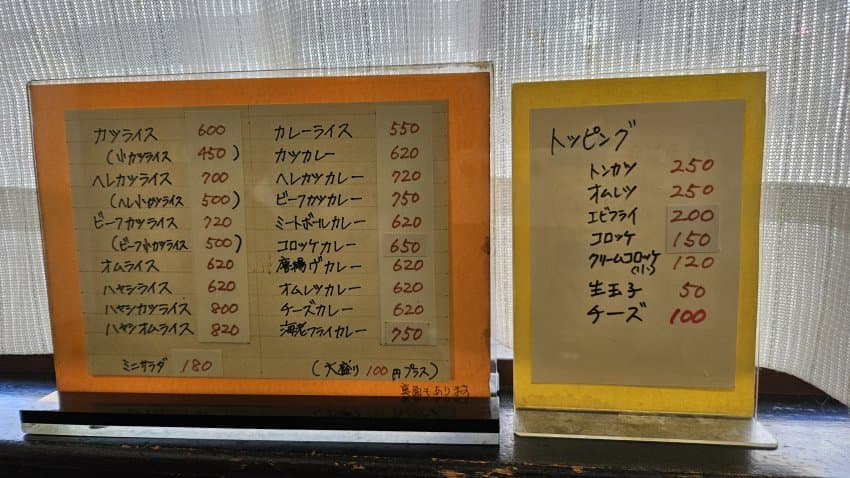 カツライス 600
(小カツライス 450)
ヘレカツライス 700
(ヘレ小カツライス 500)
ビーフカツライス 720
(ビーフ小カツライス 500)
オムライス 620
ハヤシライス 620
ハヤシカツライス 800
ハヤシオムライス 820
ミニサラダ 180
カレーライス 550
カツカレー 620
ヘレカツカレー 720
ビーフカツカレー 750
ミートボールカレー 620
コロッケカレー 650
唐揚げカレー 620
オムレツカレー 620
チーズカレー 620
海老フライカレー 750
(大盛り100円プラス)
裏面もあります
トッピング
トンカツ 250
オムレツ 250
エビフライ 200
コロッケ 150
クリームコロッケ 120
(1ケ)
生玉子 50
チーズ 100